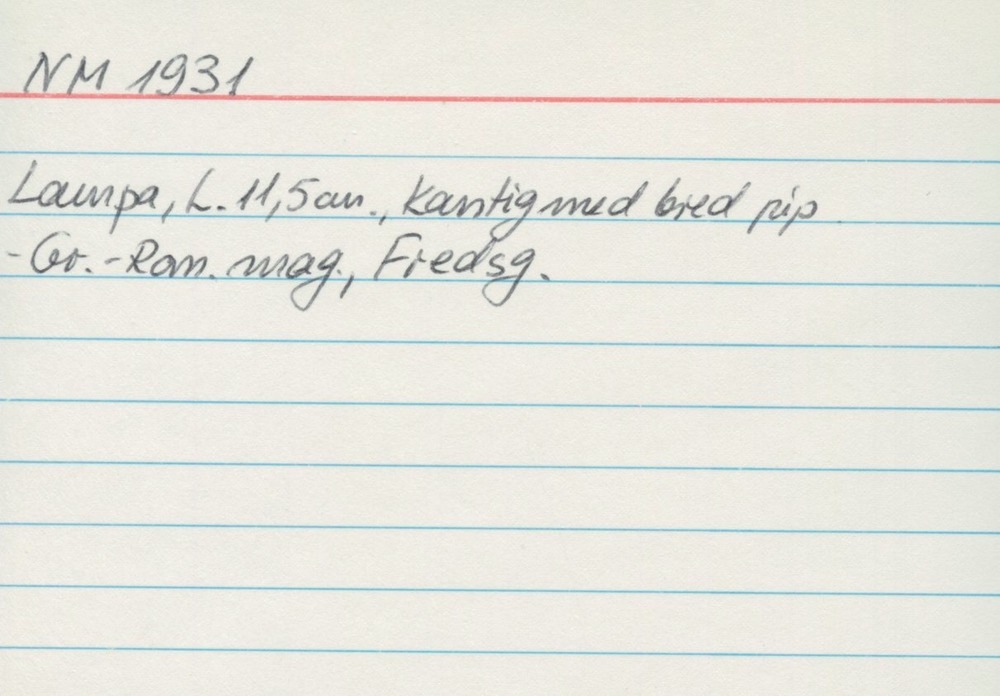 NM 1931
Lampa, L. 11,5 cm., kantig med bred pip.
- Gr.-Rom. mag., Fredsg.